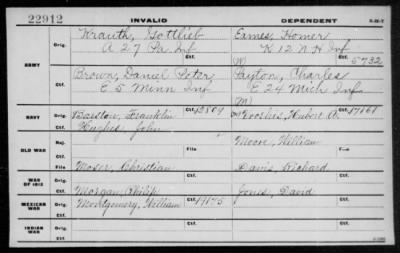 22912
INVALID
DEPENDENT
Wrauth, Gottlieb
Eames, Homer
ARMY
Orig.
A 27 Pa Inf
Orig.
K 12 N H Inf
(W) 5732
Brown, Daniel Peter
Payton, Charles
Ctf.
E 5 Minn Inf
Ctf.
E 24 Mich Inf
(M)
NAVY
Orig.
Barstow, Franklin 12809
Orig.
Hubert A. 17868
Ctf.
Hughes, John
Ctf.
OLD WAR
Rej.
Moore, William
File
File
Moser, Christian
Davis, Richard
WAR OF 1812
Orig.
Ctf.
Morgan, Philip
Jones, David
MEXICAN WAR
Orig.
Montgomery, William 19175
Orig.
Ctf.
Ctf.
INDIAN WAR
Orig.
Orig.
Ctf.
Ctf.